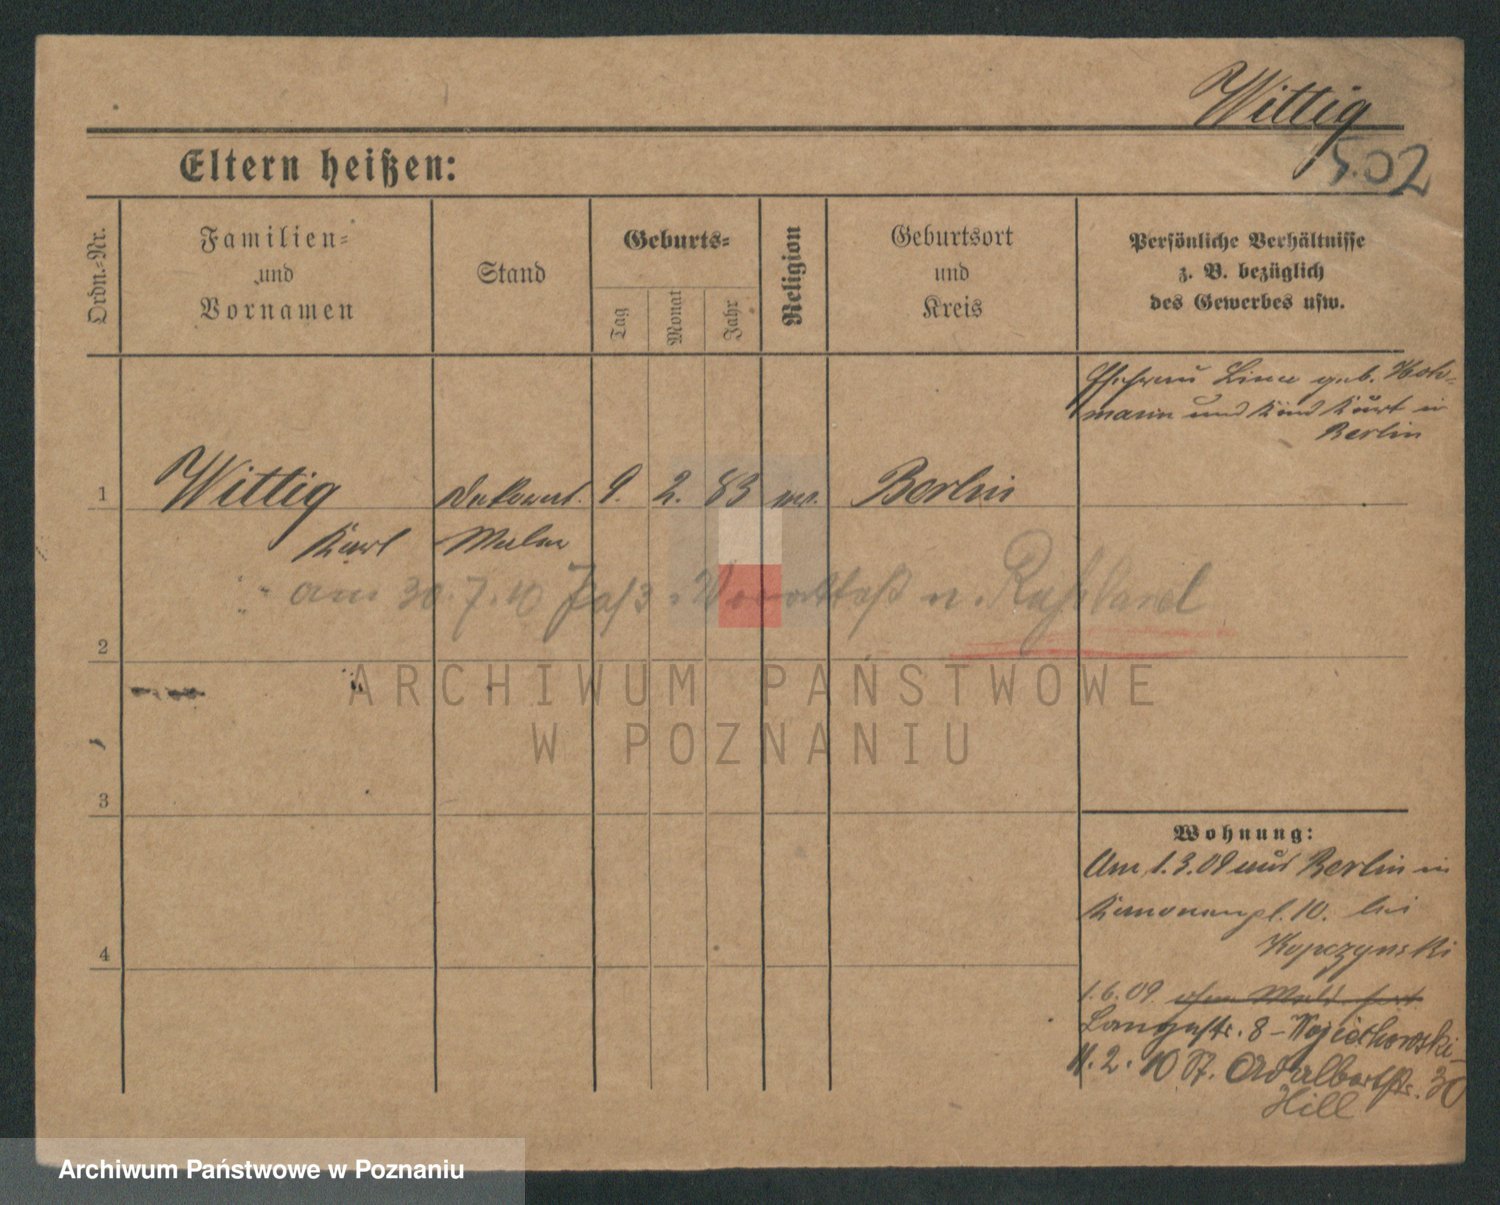 Wittig
502
Eltern heißen:
Ordn.-Nr.
Familien-
und
Vornamen
Stand
Geburts-
Tag
Monat
Jahr
Religion
Geburtsort
und
Kreis
Persönliche Verhältnisse
z. B. bezüglich
des Gewerbes usw.
Ehefrau geb. Hoh-
mann und Kind Kurt in
Berlin
1
Wittig
Dekorat.
9.
2.
83
Berlin
Karl
Maler
am 30.7.10 n. Rußland
2
3
4
Wohnung:
Am 1.3.09 aus Berlin in
Kanonenpl. 10. bei
Kopczynski
1.6.09 ohne Meld. fort
Langestr. 8 - Wojciechowski
11.2.10 St. Adalbertstr. 30
Hill
ARCHIWUM PAŃSTWOWE
W POZNANIU
Archiwum Państwowe w Poznaniu